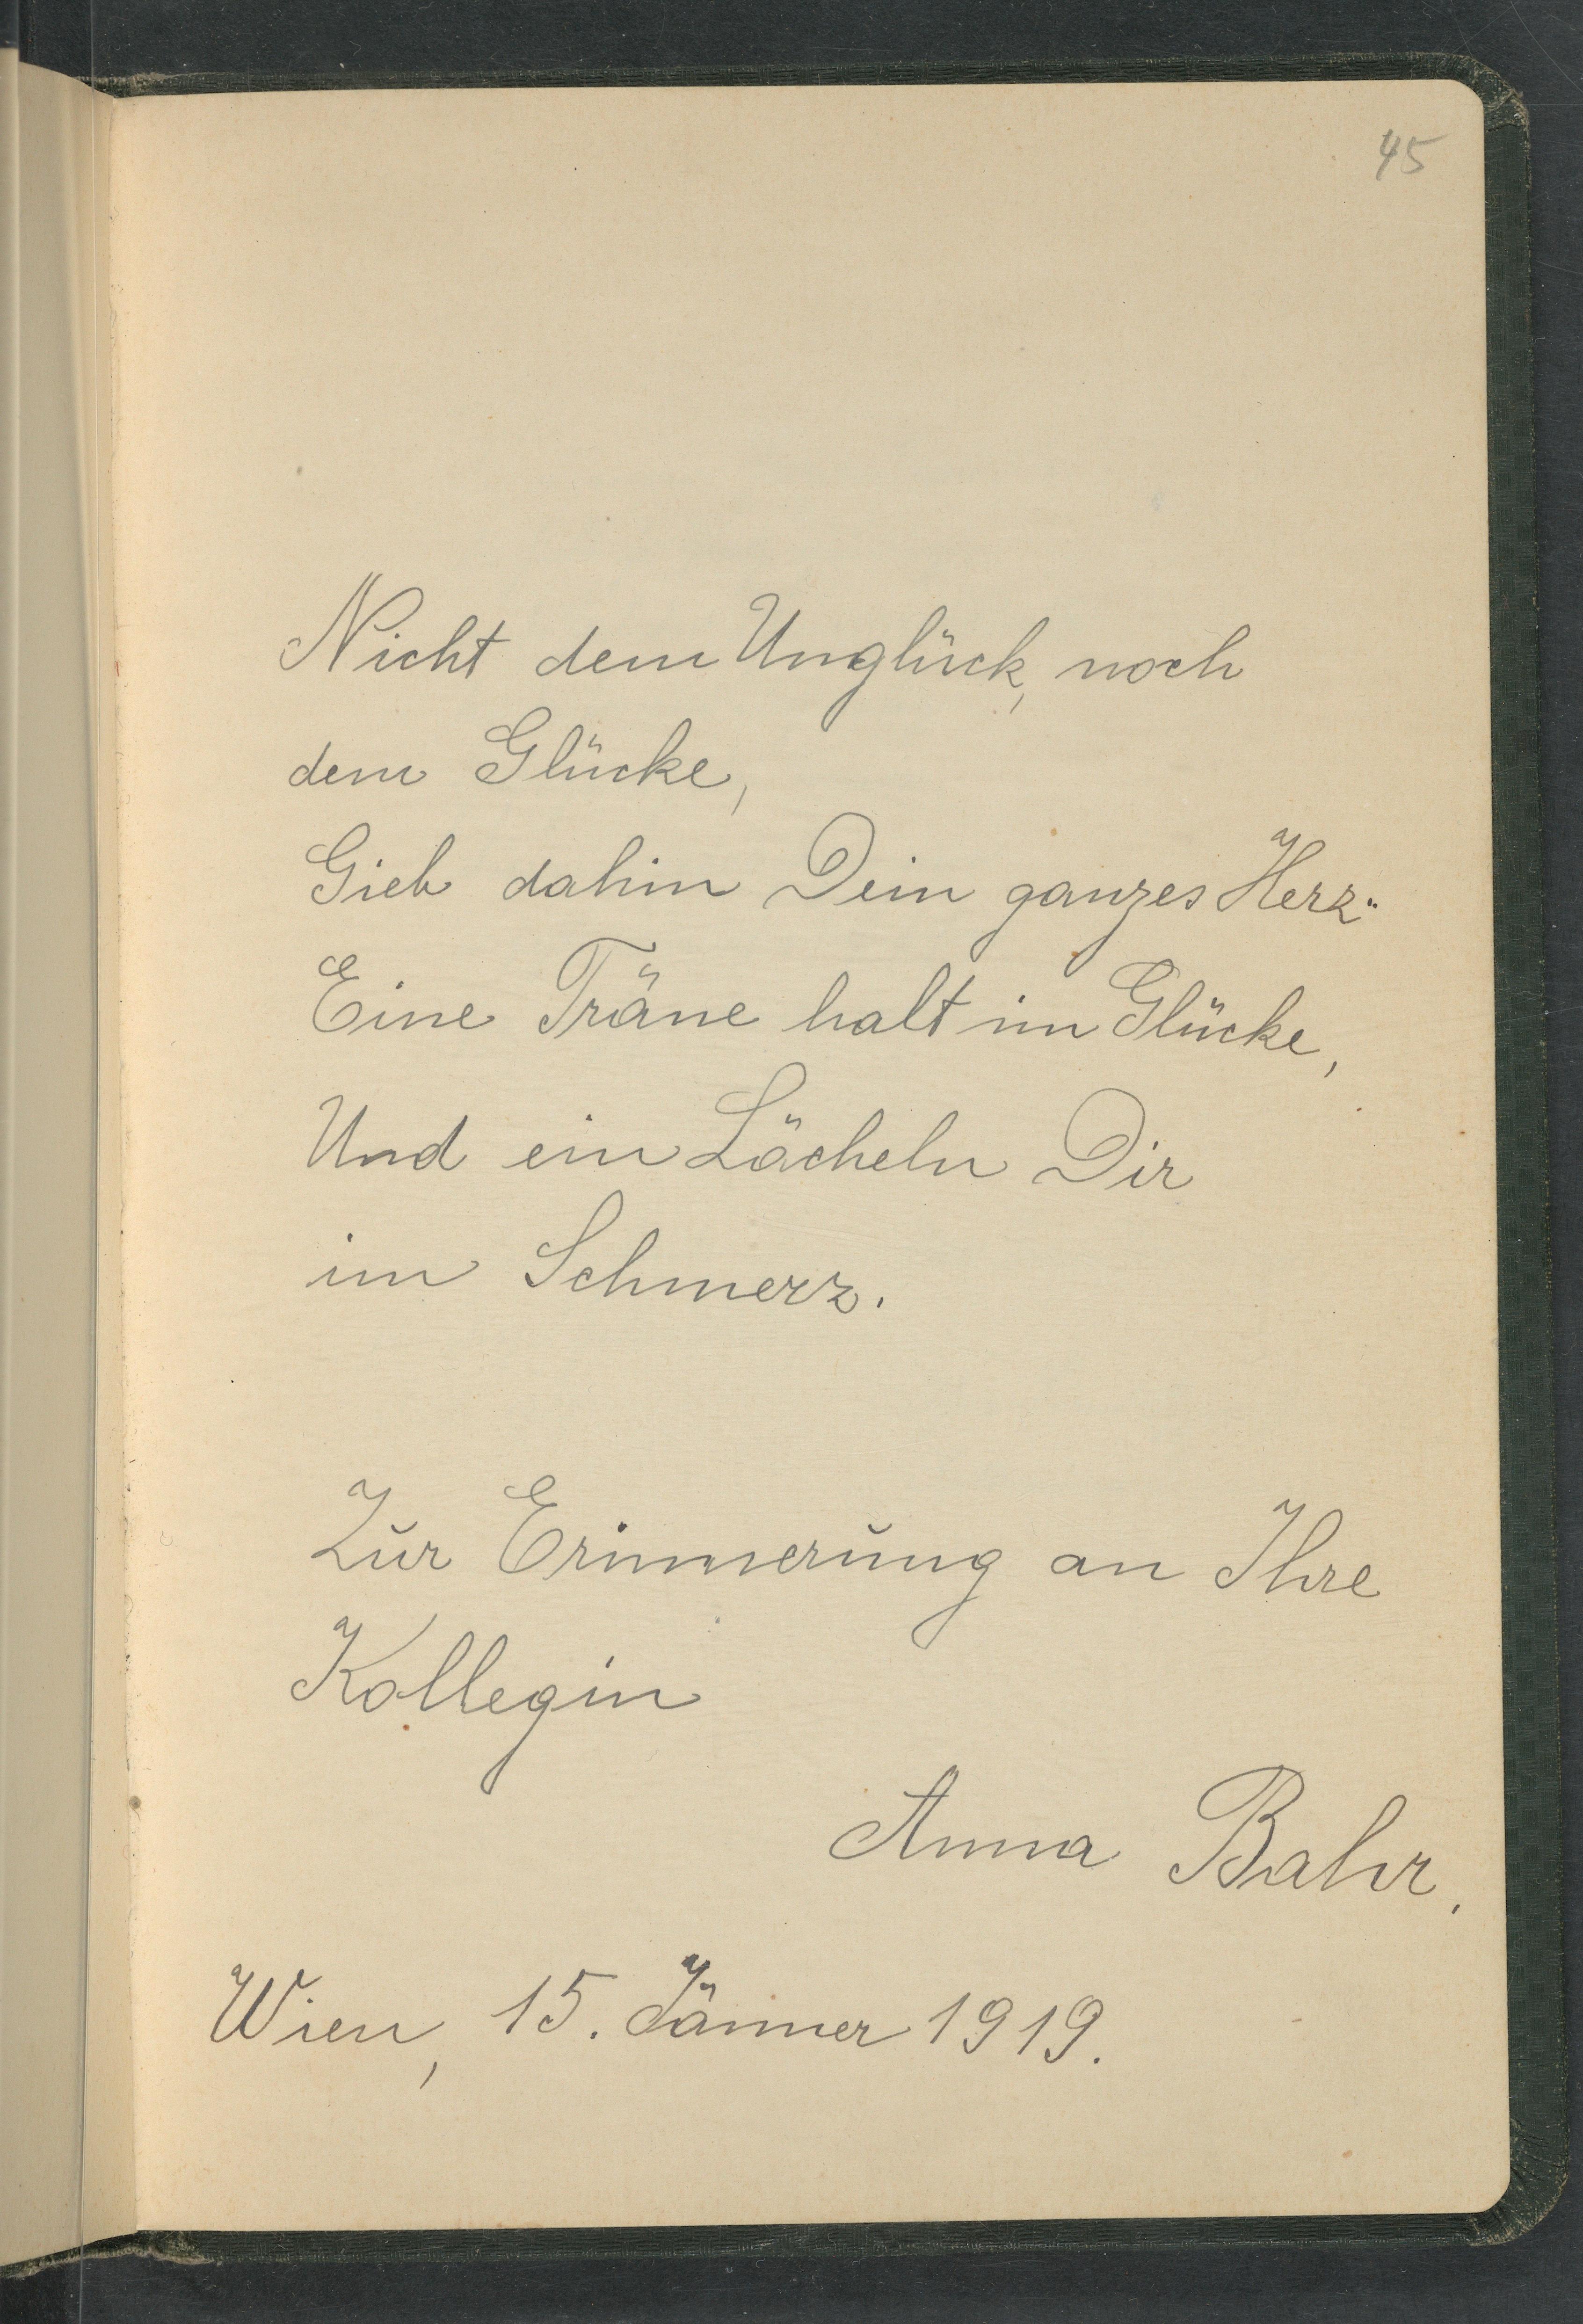 45
Nicht dem Unglück, noch
dem Glücke,
Gieb dahin Dein ganzes Herz:
Eine Träne halt im Glücke,
Und ein Lächeln Dir
im Schmerz.
Zur Erinnerung an Ihre
Kollegin
Anna Bahr.
Wien, 15. Jänner 1919.